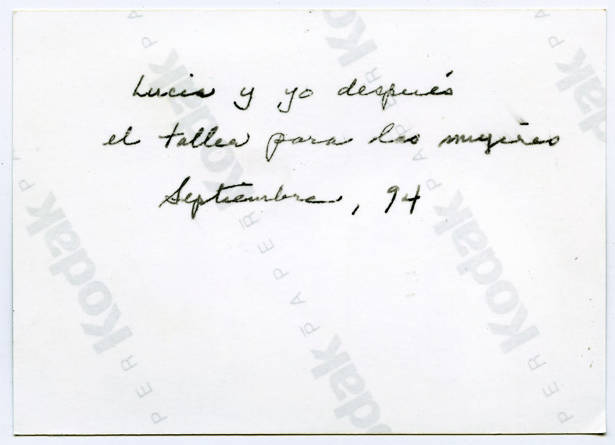 Lucia y yo después
el taller para las mujeres
Septiembre, 94
Kodak PAPER
Kodak PAPER
Kodak PAPER
Kodak PAPER
Kodak PAPER